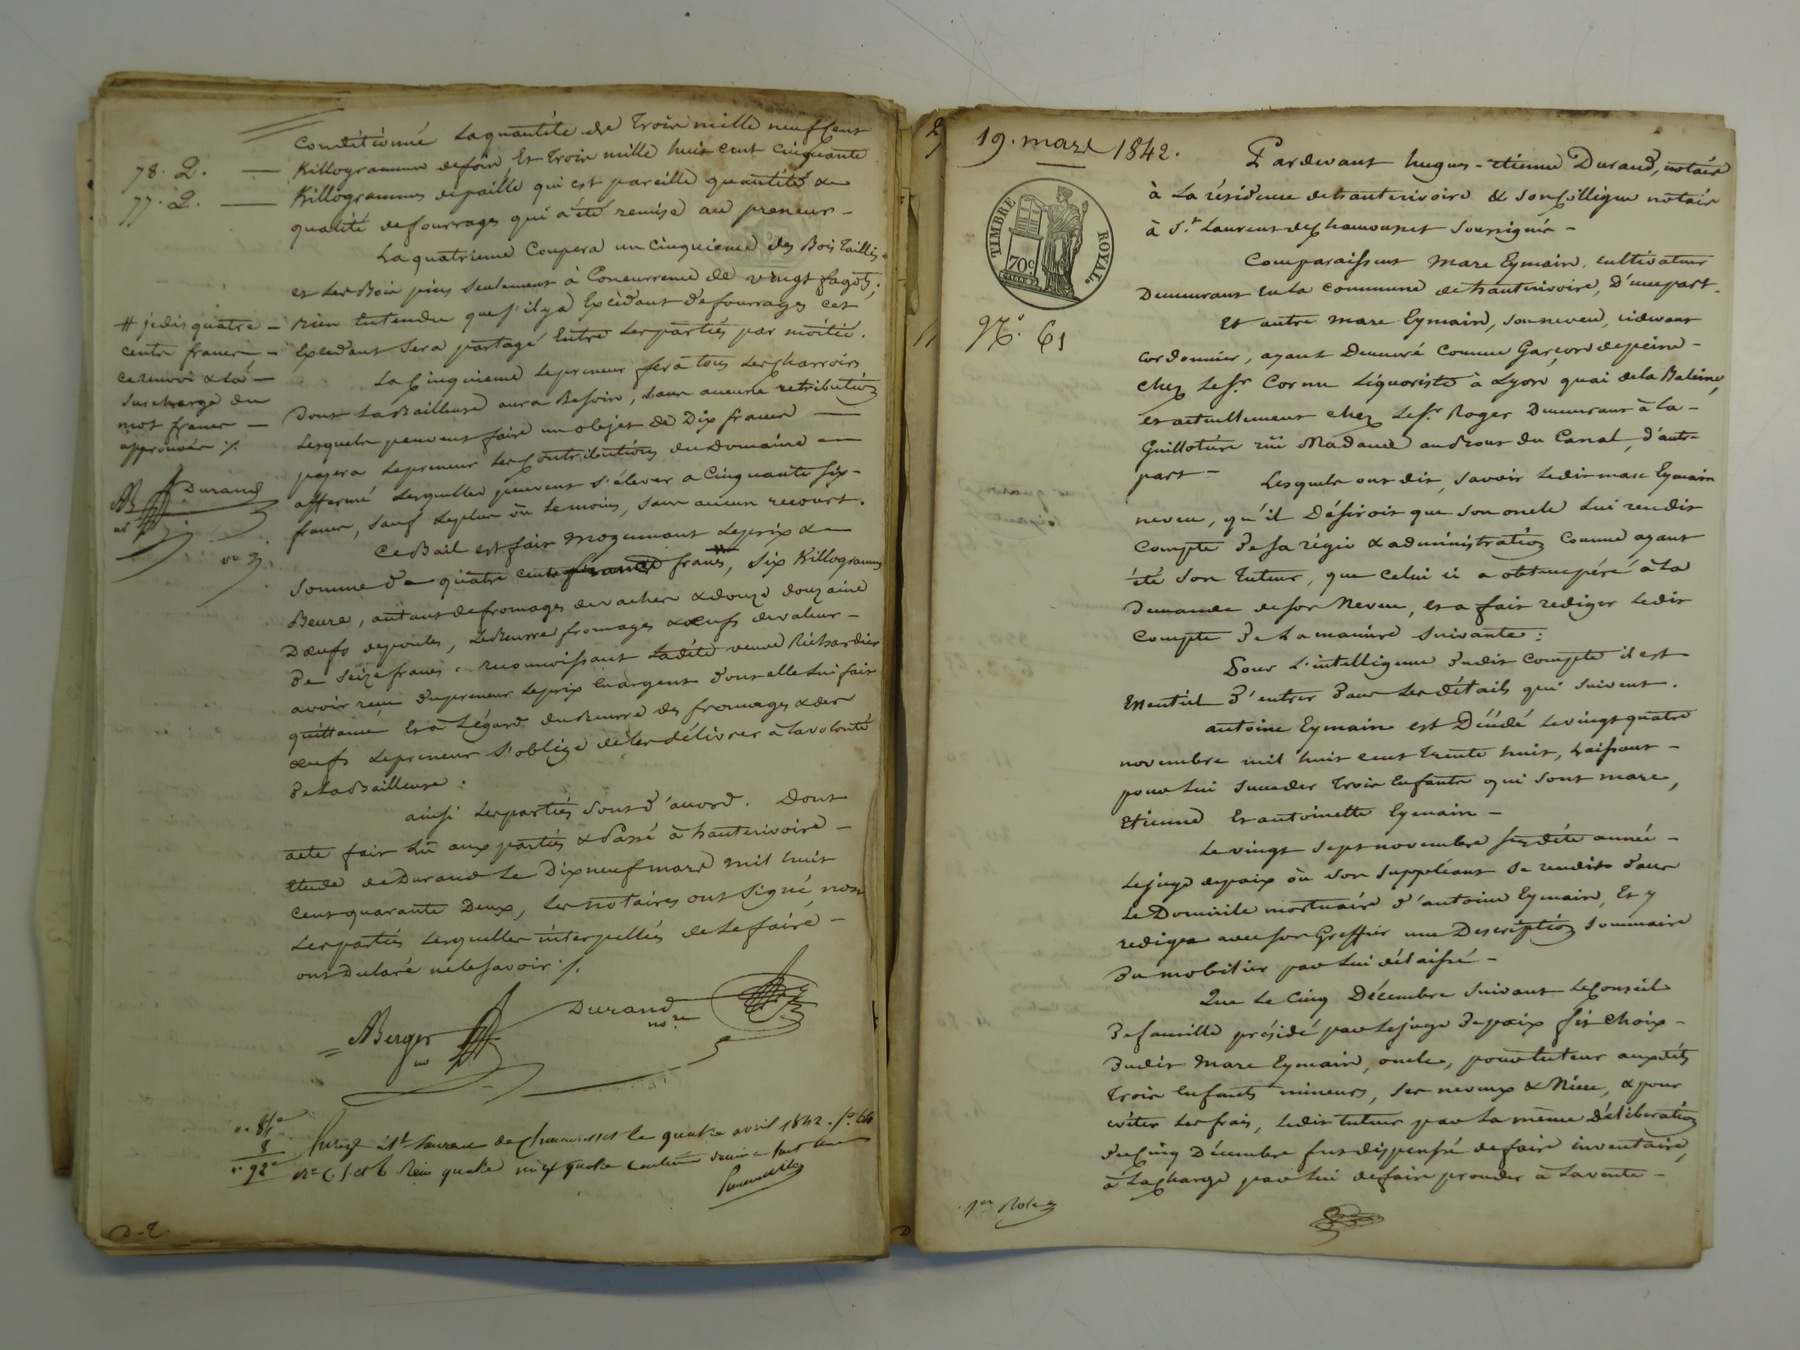 conditionné la quantité de trois mille neuf cent
78. 2. — Killogramme de foin, et trois mille huit cent cinquante
77. 2. — Killogrammes de paille qui est pareille quantité &
qualité de fourrages qui a été remise au preneur -
La quatrieme coupera un cinquieme des Bois taillis
et les Bois pins seulement à concurrence de vingt fagots,
rien entendu que s'il y a excédant de fourrages cet
excedant sera partagé entre les parties par moitié.
La cinquieme le preneur fera tous les charrois
dont la Bailleuse aura besoin, sans aucune retribution
lesquels peuvent faire un objet de Dix francs —
payera le preneur les contributions du Domaine —
affermé lesquelles peuvent s'élever a cinquante six -
francs, sauf le plus ou le moins, sans aucun recours.
# je dis quatre -
cents francs -
ce renvoi & la -
surcharge du
mot francs -
approuvés ./.
AB Durand
Ce Bail est fait moyennant le prix &
somme de quatre cents francs, six Killogrammes
Beure, autant de fromages de vaches & douze douzaine
D'œufs de poules, le Beurre fromages & œufs de valeur -
de seize francs. reconnoissant ladite veuve Richardier
avoir reçu du preneur le prix en argent dont elle lui fait
quittance et à l'égard du Beurre des fromages & des
œufs le preneur s'oblige de les délivrer à la volonté
de la Bailleuse :
ainsi les parties sont d'accord. Dont
acte fait lu aux parties & Passé à hauterivoire -
etude de Durand le Dix neuf mars mil huit
cent quarante Deux, les notaires ont signé, non
les parties lesquelles interpellées de le faire -
ont Déclaré ne le savoir ./.
ABerger
Durand
nore
8
92
à St Laurent de Chamousset le quatre avril 1842. fo 66
D. 2
19. mars 1842.
TIMBRE ROYAL.
70c
No. 61
Pardevant hugues-etienne Durand, notaire
à la résidence de hauterivoire & son collègue notaire
à St. Laurent de Chamousset soussignés -
Comparaissent marc Eymain, cultivateur
Demeurant en la commune de hauterivoire, D'une part.
Et autre marc Eymain, son neveu, ci devant
cordonnier, ayant Demeuré comme Garçon de peine -
chez le Sr. Cornu Liquoriste à Lyon quai de la Baleine,
et actuellement chez le Sr. Roger Demeurant à la -
Guillotière rüe Madame au Bout du Canal, d'autre
part -
Lesquels ont dit, savoir ledit marc Eymain
neveu, qu'il Désiroit que son oncle lui rendit
compte de sa régie & administration comme ayant
été son tuteur, que celui ci a obtempéré à la
Demande de son Neveu, et a fait rediger ledit
compte de la manière suivante :
Pour l'intelligence dudit compte il est
essentiel d'entrer dans les détails qui suivent.
antoine Eymain est Décédé le vingt quatre
novembre mil huit cent trente huit, laissant -
pour lui succeder trois enfants qui sont marc,
etienne et antoinette Eymain -
Le vingt sept novembre susdite année -
le juge de paix ou son suppléant se rendit dans
le Domicile mortuaire d'antoine Eymain, et y
redigea avec son Greffier une Description sommaire
du mobilier par lui délaissé -
Que le cinq Décembre suivant le conseil
de famille présidé par le juge de paix fit choix -
dudit Marc Eymain, oncle, pour tuteur auxdits
trois enfants mineurs, ses neveux & Niece, & pour
eviter les frais, ledit tuteur par la même délibération
du cinq Décembre fut dispensé de faire inventaire,
à la charge par lui de faire proceder à la vente -
1er Role